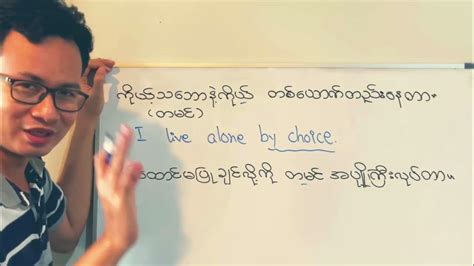 ကိုယ့်သဘောနဲ့ကိုယ် တစ်ယောက်တည်းနေတာ။
(တမင်)
I live alone by choice.
ထောင်မပြုချင်လို့ကို တမင် အပျိုကြီးလုပ်တာ။